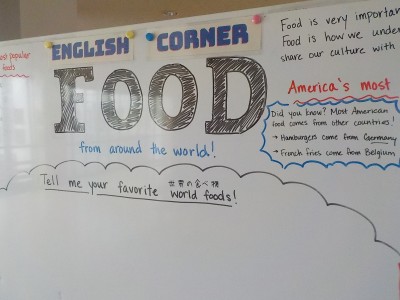 popular
foods
ENGLISH CORNER
FOOD
from around the world!
Food is very importan
Food is how we under
share our culture with
America's most
Did you know? Most American
food comes from other countries!
→ Hamburgers come from Germany
→ French fries come from Belgium
世界の食べ物
Tell me your favorite world foods!